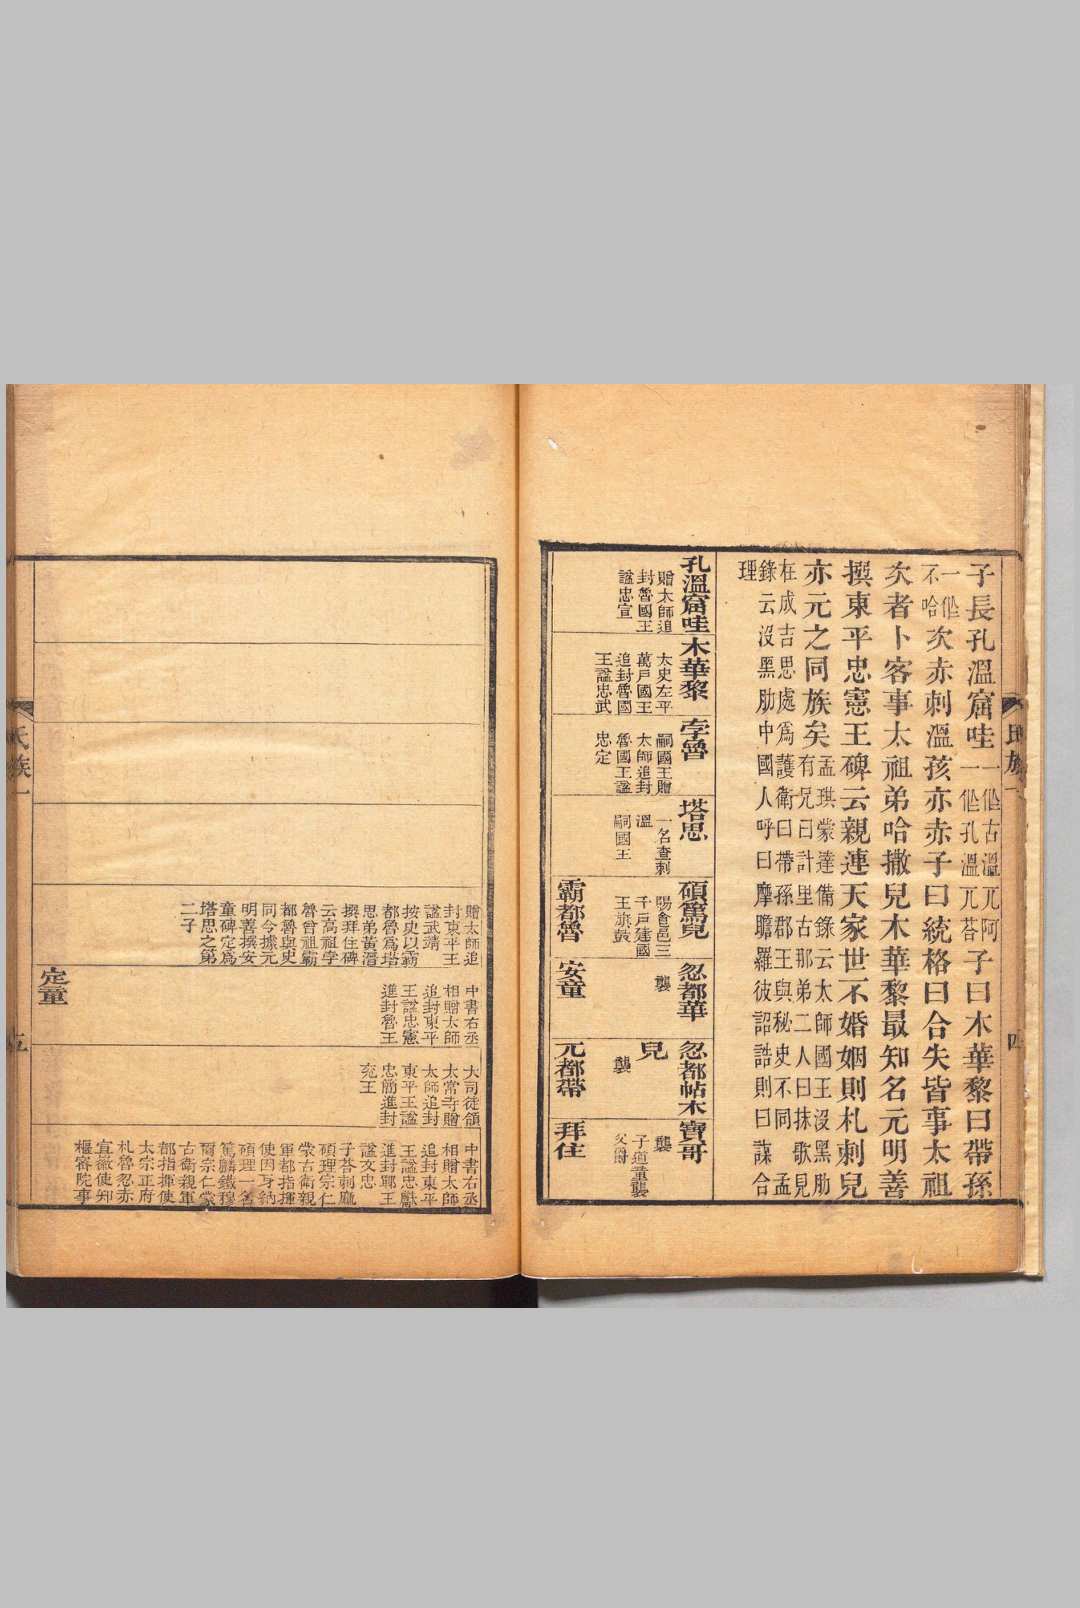 子長孔溫窟哇一作古溫兀阿
一作孔溫兀荅子曰木華黎曰帶孫
一作
不哈次赤刺溫孩亦赤子曰統格曰合失皆事太祖
次者卜客事太祖弟哈撒兒木華黎最知名元明善
撰東平忠憲王碑云親連天家世不婚姻則札刺兒
亦元之同族矣孟珙蒙達備錄云太師國王沒黑肋
有兄曰計里古那弟二人曰抹歌見
在成吉思處爲護衛曰帶孫郡王與秘史不同孟
錄云沒黑肋中國人呼曰摩睺羅彼詔誥則曰謀合
理
孔溫窟哇
贈太師追
封魯國王
諡忠宣
木華黎
太史左平
萬戶國王
追封魯國
王諡忠武
孛魯
嗣國王贈
太師追封
魯國王諡
忠定
塔思
一名查剌
溫
嗣國王
碩篤兒
賜食邑三
千戶建國
王旂鼓
忽都華
襲
忽都帖木
兒
襲
寶哥
襲
子道童襲
父爵
霸都魯
安童
兀都帶
拜住
氏族一
四
贈太師追
封東平王
諡武靖
按史以霸
都魯爲塔
思弟黃溍
撰拜住碑
云高祖孛
魯曾祖霸
都魯與史
同令據元
明善撰安
童碑定爲
塔思之第
二子
中書右丞
相贈太師
追封東平
王諡忠憲
進封魯王
大司徒領
太常寺贈
太師追封
東平王諡
忠簡進封
兗王
中書右丞
相贈太師
追封東平
王諡忠獻
進封鄆王
諡文忠
子荅剌麻
碩理宗仁
蒙古衛親
軍都指揮
使因牙納
碩理一名
篤麟鐵穆
爾宗仁蒙
古衛親軍
都指揮使
太宗正府
札魯忽赤
宣徽使知
樞密院事
定童
氏族一
五